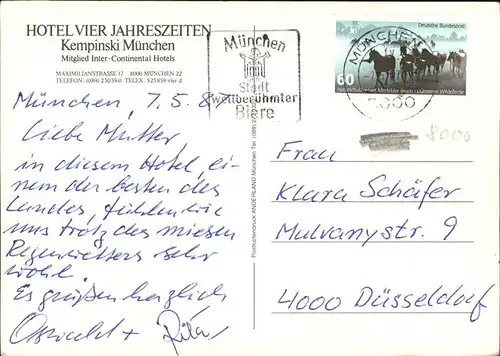 HOTEL VIER JAHRESZEITEN
Kempinski München
Mitglied Inter-Continental Hotels
MAXIMILIANSTRASSE 17 8000 MÜNCHEN 22
TELEFON: (089) 230390 TELEX: 523859 vier d
München, 7.5.87
Liebe Mutter,
in diesem Hotel, ei-
nem der besten des
Landes, fühlen wir
uns trotz des miesen
Regenwetters sehr
wohl.
Es grüßen herzlich
Oswald + Rita
München
Stadt
weltberühmter
Biere
Postkartendruck ANDERLAND München Tel. (089)
Deutsche Bundespost
60
Naturschutzgebiet Merfelder Bruch · Dülmener Wildpferde
MÜNCHEN
8000
8000
Frau
Klara Schäfer
Mulvanystr. 9
4000 Düsseldorf